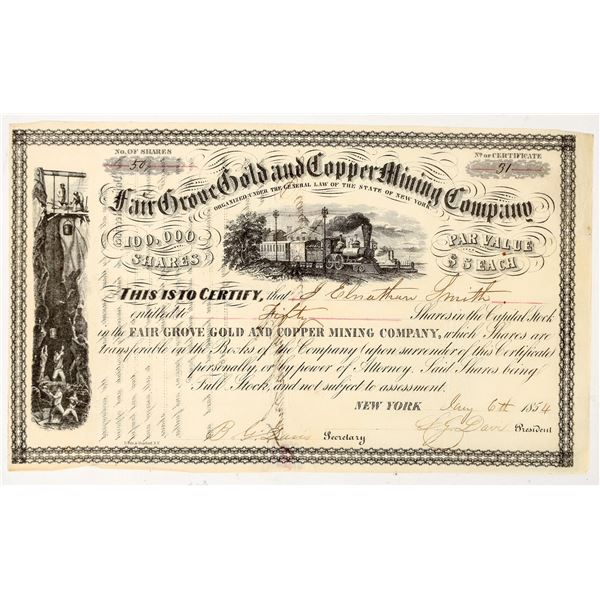 No. OF SHARES
50
No. OF CERTIFICATE
31
Fair Grove Gold and Copper Mining Company
ORGANIZED UNDER THE GENERAL LAW OF THE STATE OF NEW YORK
100,000 SHARES
PAR VALUE $5 EACH
THIS IS TO CERTIFY, that J Elnathan Smith
entitled to Fifty Shares in the Capital Stock
in the FAIR GROVE GOLD AND COPPER MINING COMPANY, which Shares are
transferable on the Books of the Company (upon surrender of this Certificate)
personally, or by power of Attorney. Said Shares being
Full Stock, and not subject to assessment.
NEW YORK Jany 6th 1854
B. G. Davis Secretary President